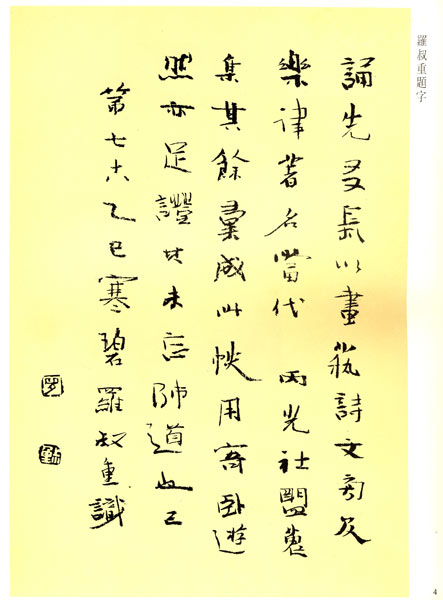 羅叔重題字
誦先長以畫蓺詩文及
樂律著名當代 丙光社盟裒
集其餘彙成此帙用寄卧遊
然亦足證其未忘師道也已
第七六乙巳寒碧羅叔重識
4